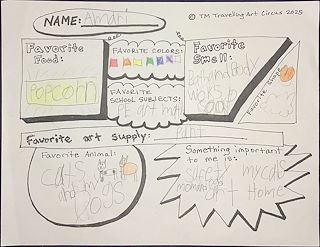 NAME: Amari
© TM Travelling Art Circus 2025
Favorite Food:
POPCORN
FAVORITE COLORS:
FAVORITE SCHOOL SUBJECTS:
art math
Favorite Smell:
works
soap
Favorite Shape
Favorite art supply:
Paint
Favorite Animal:
cats
and
Dogs
Something important to me is:
safety my cats
home